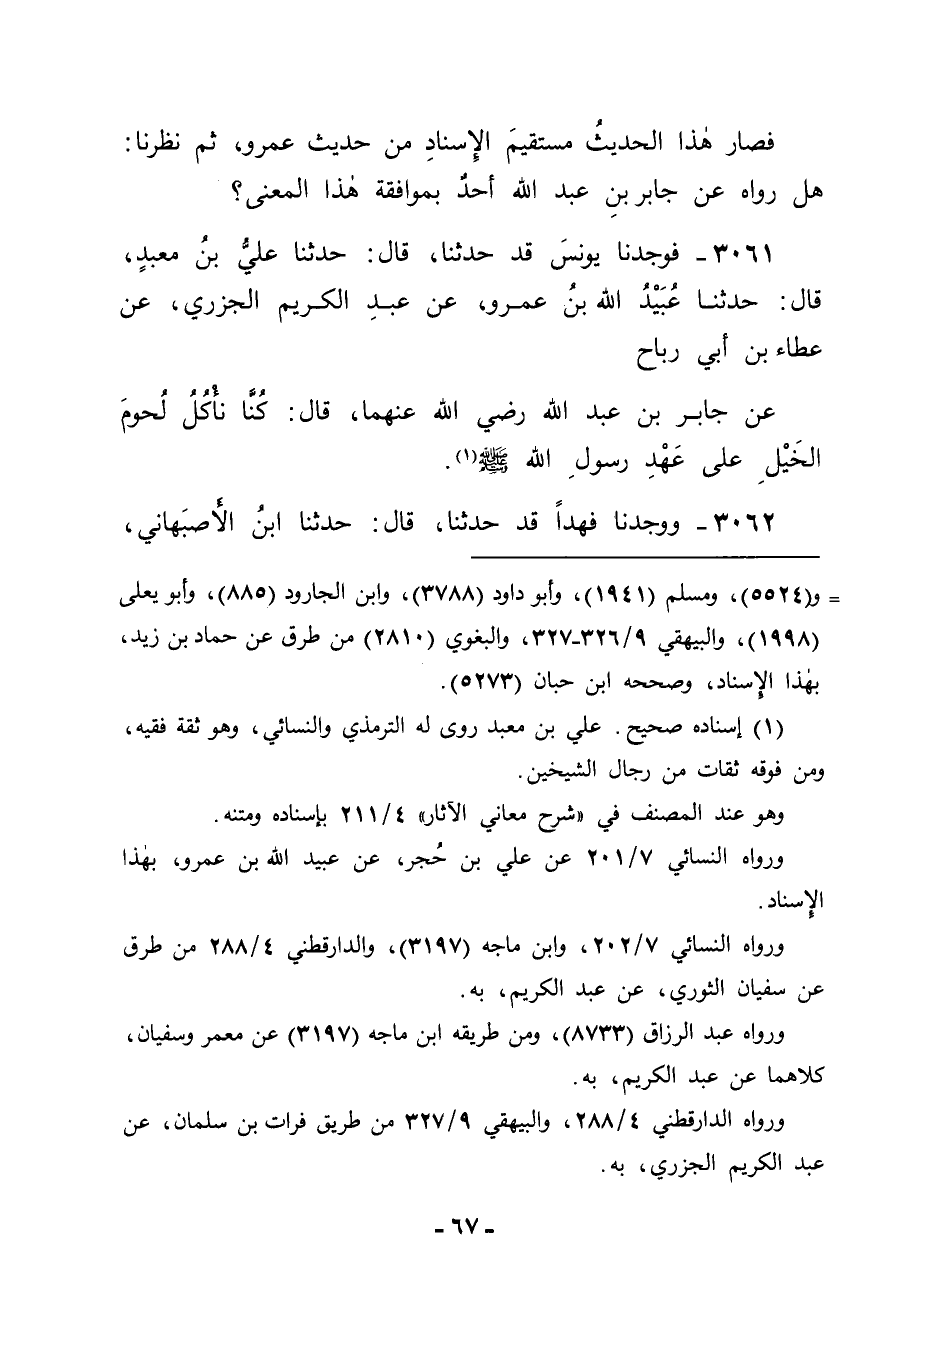 فصار هٰذا الحديثُ مستقيمَ الإِسنادِ من حديث عمرو، ثم نظرنا:
هل رواه عن جابر بنِ عبد الله أحدٌ بموافقة هٰذا المعنى؟
٣٠٦١ ـ فوجدنا يونسَ قد حدثنا، قال: حدثنا عليُّ بنُ معبدٍ،
قال: حدثنا عُبَيْدُ الله بنُ عمرو، عن عبدِ الكريم الجزري، عن
عطاء بن أبي رباح
عن جابر بن عبد الله رضي الله عنهما، قال: كُنَّا نأْكُلُ لُحومَ
الخَيْلِ على عَهْدِ رسولِ الله ﷺ(١).
٣٠٦٢ ـ ووجدنا فهداً قد حدثنا، قال: حدثنا ابنُ الأَصبَهاني،
= و(٥٥٢٤)، ومسلم (١٩٤١)، وأبو داود (٣٧٨٨)، وابن الجارود (٨٨٥)، وأبو يعلى
(١٩٩٨)، والبيهقي ٩/٣٢٦ـ٣٢٧، والبغوي (٢٨١٠) من طرق عن حماد بن زيد،
بهٰذا الإِسناد، وصححه ابن حبان (٥٢٧٣).
(١) إسناده صحيح. علي بن معبد روى له الترمذي والنسائي، وهو ثقة فقيه،
ومن فوقه ثقات من رجال الشيخين.
وهو عند المصنف في «شرح معاني الآثار» ٤/٢١١ بإسناده ومتنه.
ورواه النسائي ٧/٢٠١ عن علي بن حُجر، عن عبيد الله بن عمرو، بهٰذا
الإِسناد.
ورواه النسائي ٧/٢٠٢، وابن ماجه (٣١٩٧)، والدارقطني ٤/٢٨٨ من طرق
عن سفيان الثوري، عن عبد الكريم، به.
ورواه عبد الرزاق (٨٧٣٣)، ومن طريقه ابن ماجه (٣١٩٧) عن معمر وسفيان،
كلاهما عن عبد الكريم، به.
ورواه الدارقطني ٤/٢٨٨، والبيهقي ٩/٣٢٧ من طريق فرات بن سلمان، عن
عبد الكريم الجزري، به.
ـ ٦٧ ـ